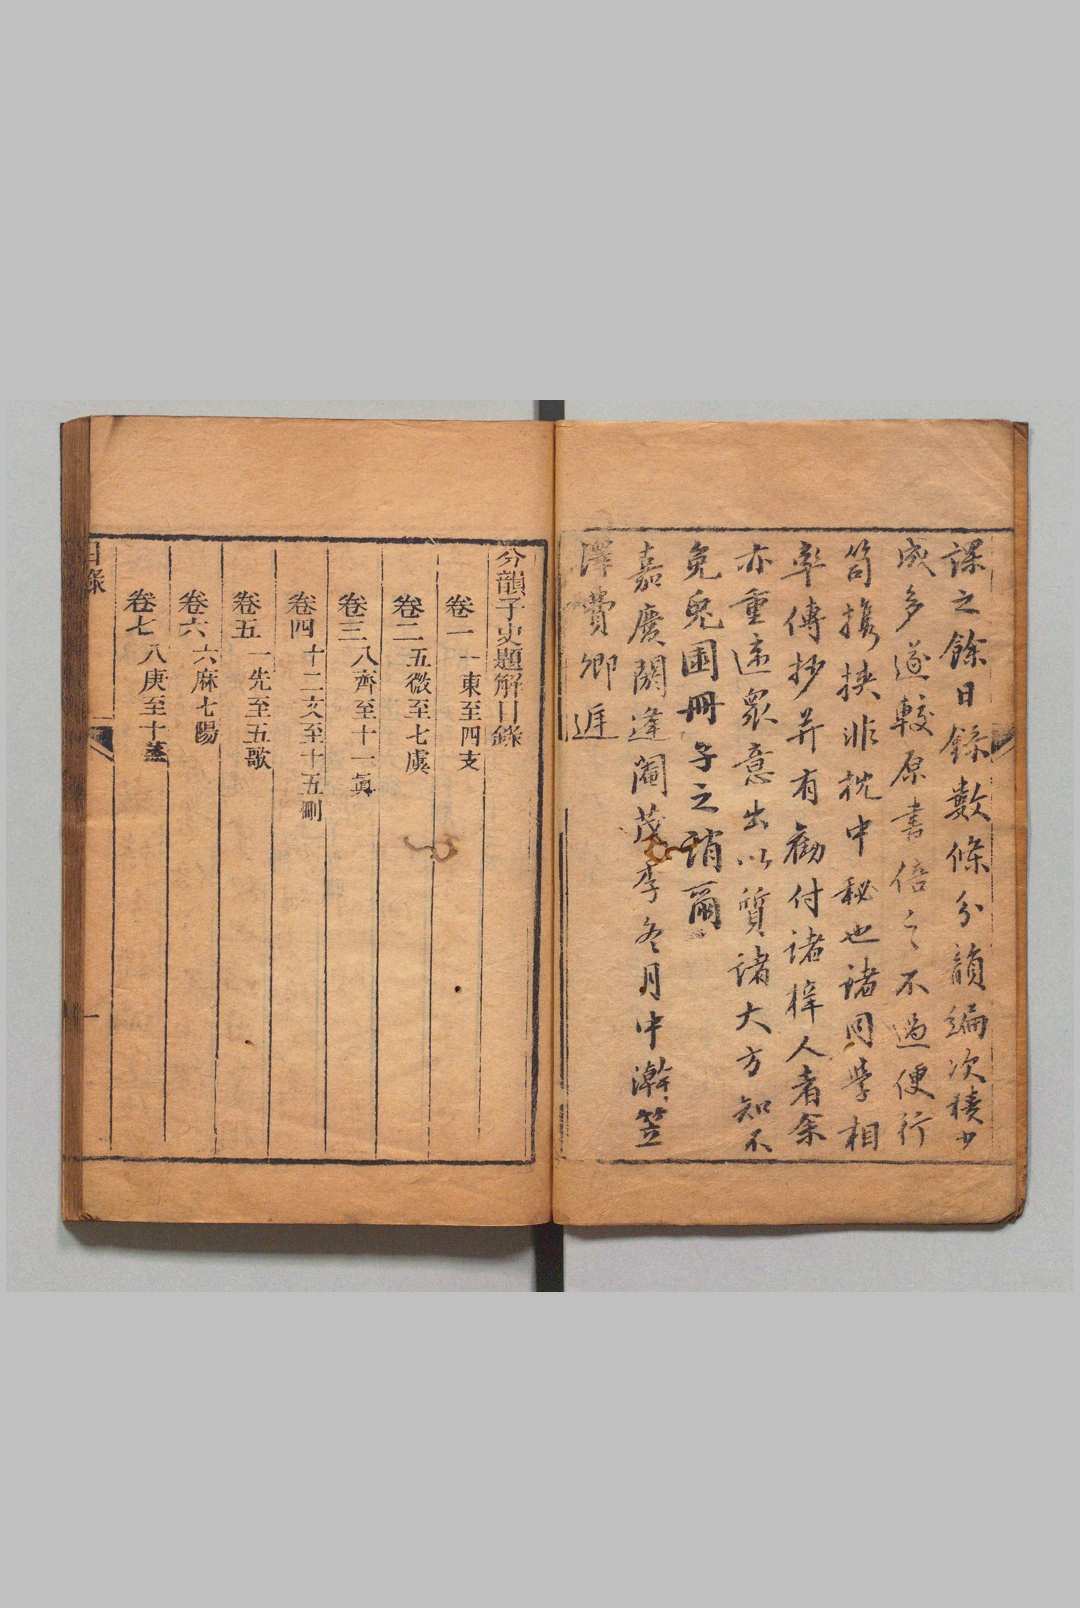 課之餘日錄數條分韻編次積少
成多遂較原書倍之不過便行
笥攜挾非枕中秘也諸同學相
率傳抄并有勸付諸梓人者余
亦重違衆意出以質諸大方知不
免兔園冊子之誚爾
嘉慶閼逢閹茂季冬月中澣笠
澤費卿
分韻子史題解目錄
卷一 一東至四支
卷二 五微至七虞
卷三 八齊至十一眞
卷四 十二文至十五刪
卷五 一先至五歌
卷六 六麻七陽
卷七 八庚至十蒸
目錄
一